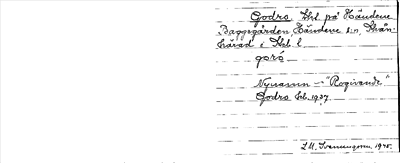 Godro. Hrl. på Händene
Baggegården, Händene s:n, Skån-
härad i Skb. l
goró
Nynamn - "Rogivande"
Godro byl. 1937.
I. M. Svanungson. 1945.